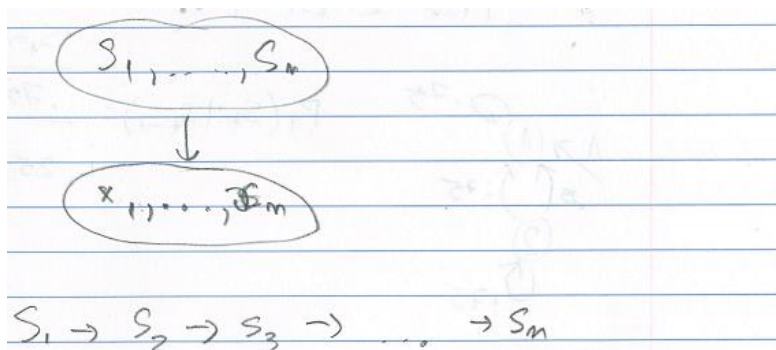 S₁, ....., Sₘ
↓
x₁, ....., xₘ
S₁ → S₂ → S₃ → .... → Sₘ